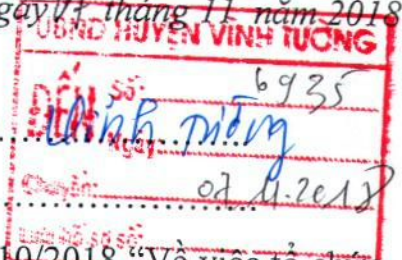 tháng 11 năm 2018
UBND HUYỆN VĨNH TƯỜNG
ĐẾN Số: 6935
Ngày:
Chuyển: 07.11.2018
10/2018 “Về việc tổ chức